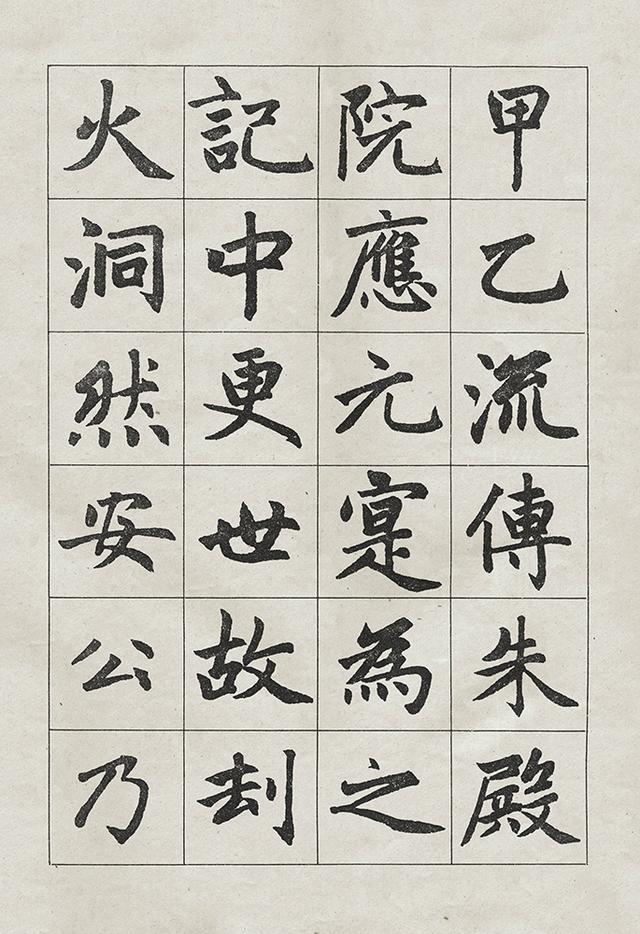 甲乙流傳朱殿
院應元寔為之
記中更世故刼
火洞然安公乃